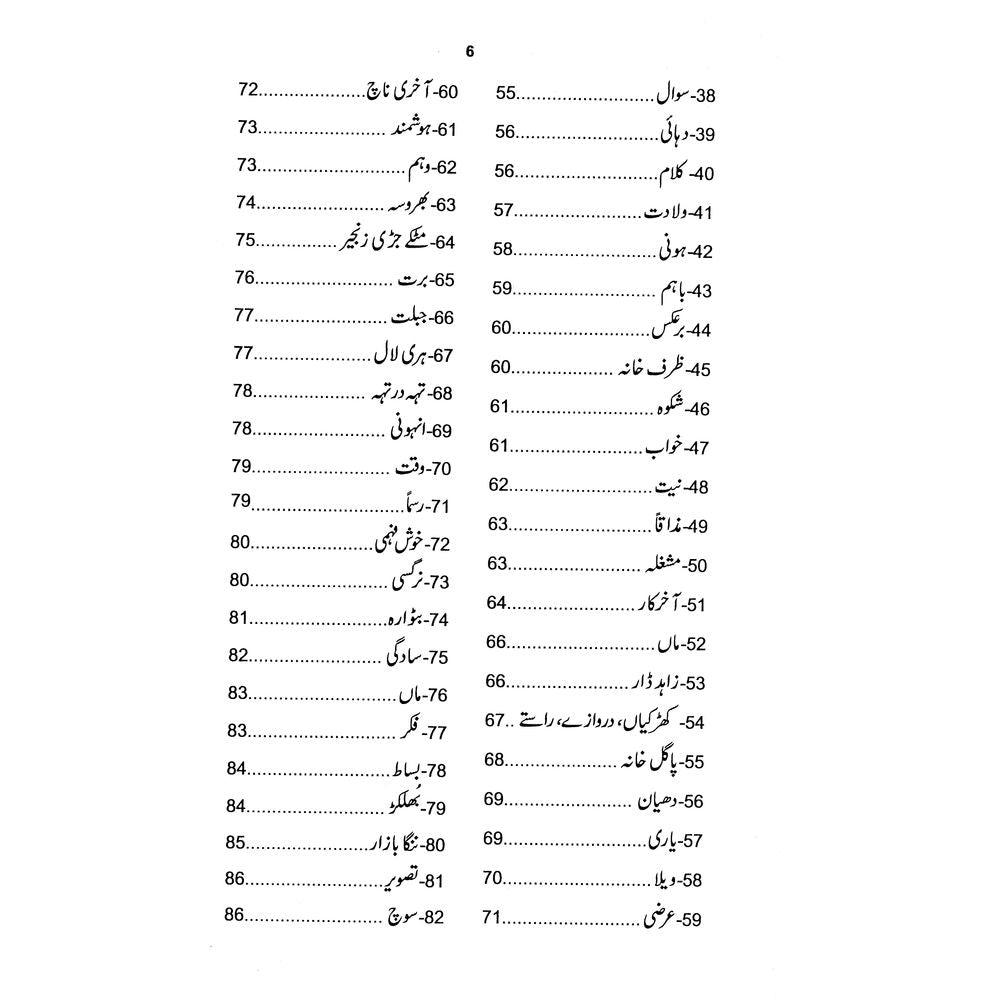 6
38-سوال..........................55
39-دہائی..........................56
40-کلام..........................56
41-ولادت..........................57
42-ہونی..........................58
43-باہم..........................59
44-برعکس..........................60
45-ظرف خانہ....................60
46-شکوہ..........................61
47-خواب..........................61
48-نیت..........................62
49-مذاقاً..........................63
50-مشغلہ..........................63
51-آخرکار........................64
52-ماں............................66
53-زاہد ڈار.......................66
54- کھڑکیاں، دروازے، راستے ..67
55-پاگل خانہ.....................68
56-دھیان........................69
57-یاری...........................69
58-ویلا............................70
59-عرضی..........................71
60-آخری ناچ....................72
61-ہوشمند........................73
62-وہم............................73
63-بھروسہ........................74
64-مٹکے جڑی زنجیر...............75
65-برت..........................76
66-جبلت.........................77
67-ہری لال......................77
68-تہہ در تہہ.....................78
69-انہونی.........................78
70-وقت..........................79
71-رسماً............................79
72-خوش فہمی.......................80
73-نرگسی..........................80
74-بٹوارہ..........................81
75-سادگی.........................82
76-ماں............................83
77-فکر............................83
78-بساط...........................84
79-بُھلکڑ..........................84
80-ننگا بازار.......................85
81-تصویر..........................86
82-سوچ..........................86